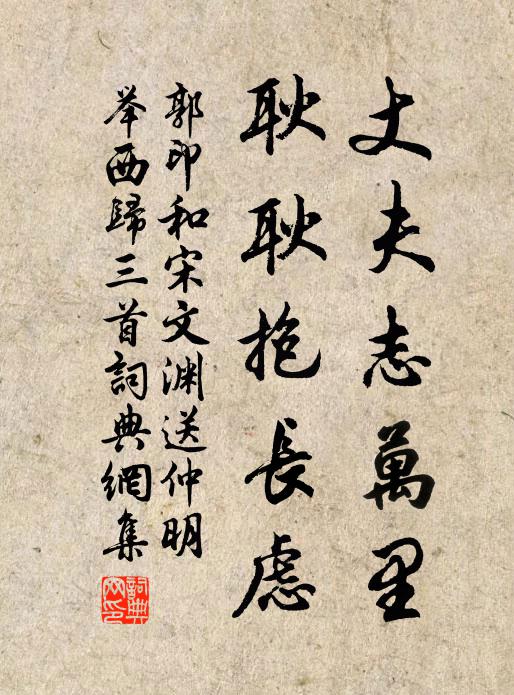 丈夫志萬里
耿耿抱長慮
郭印和宋文渊送仲明
举西歸三首詞典網集
詞典